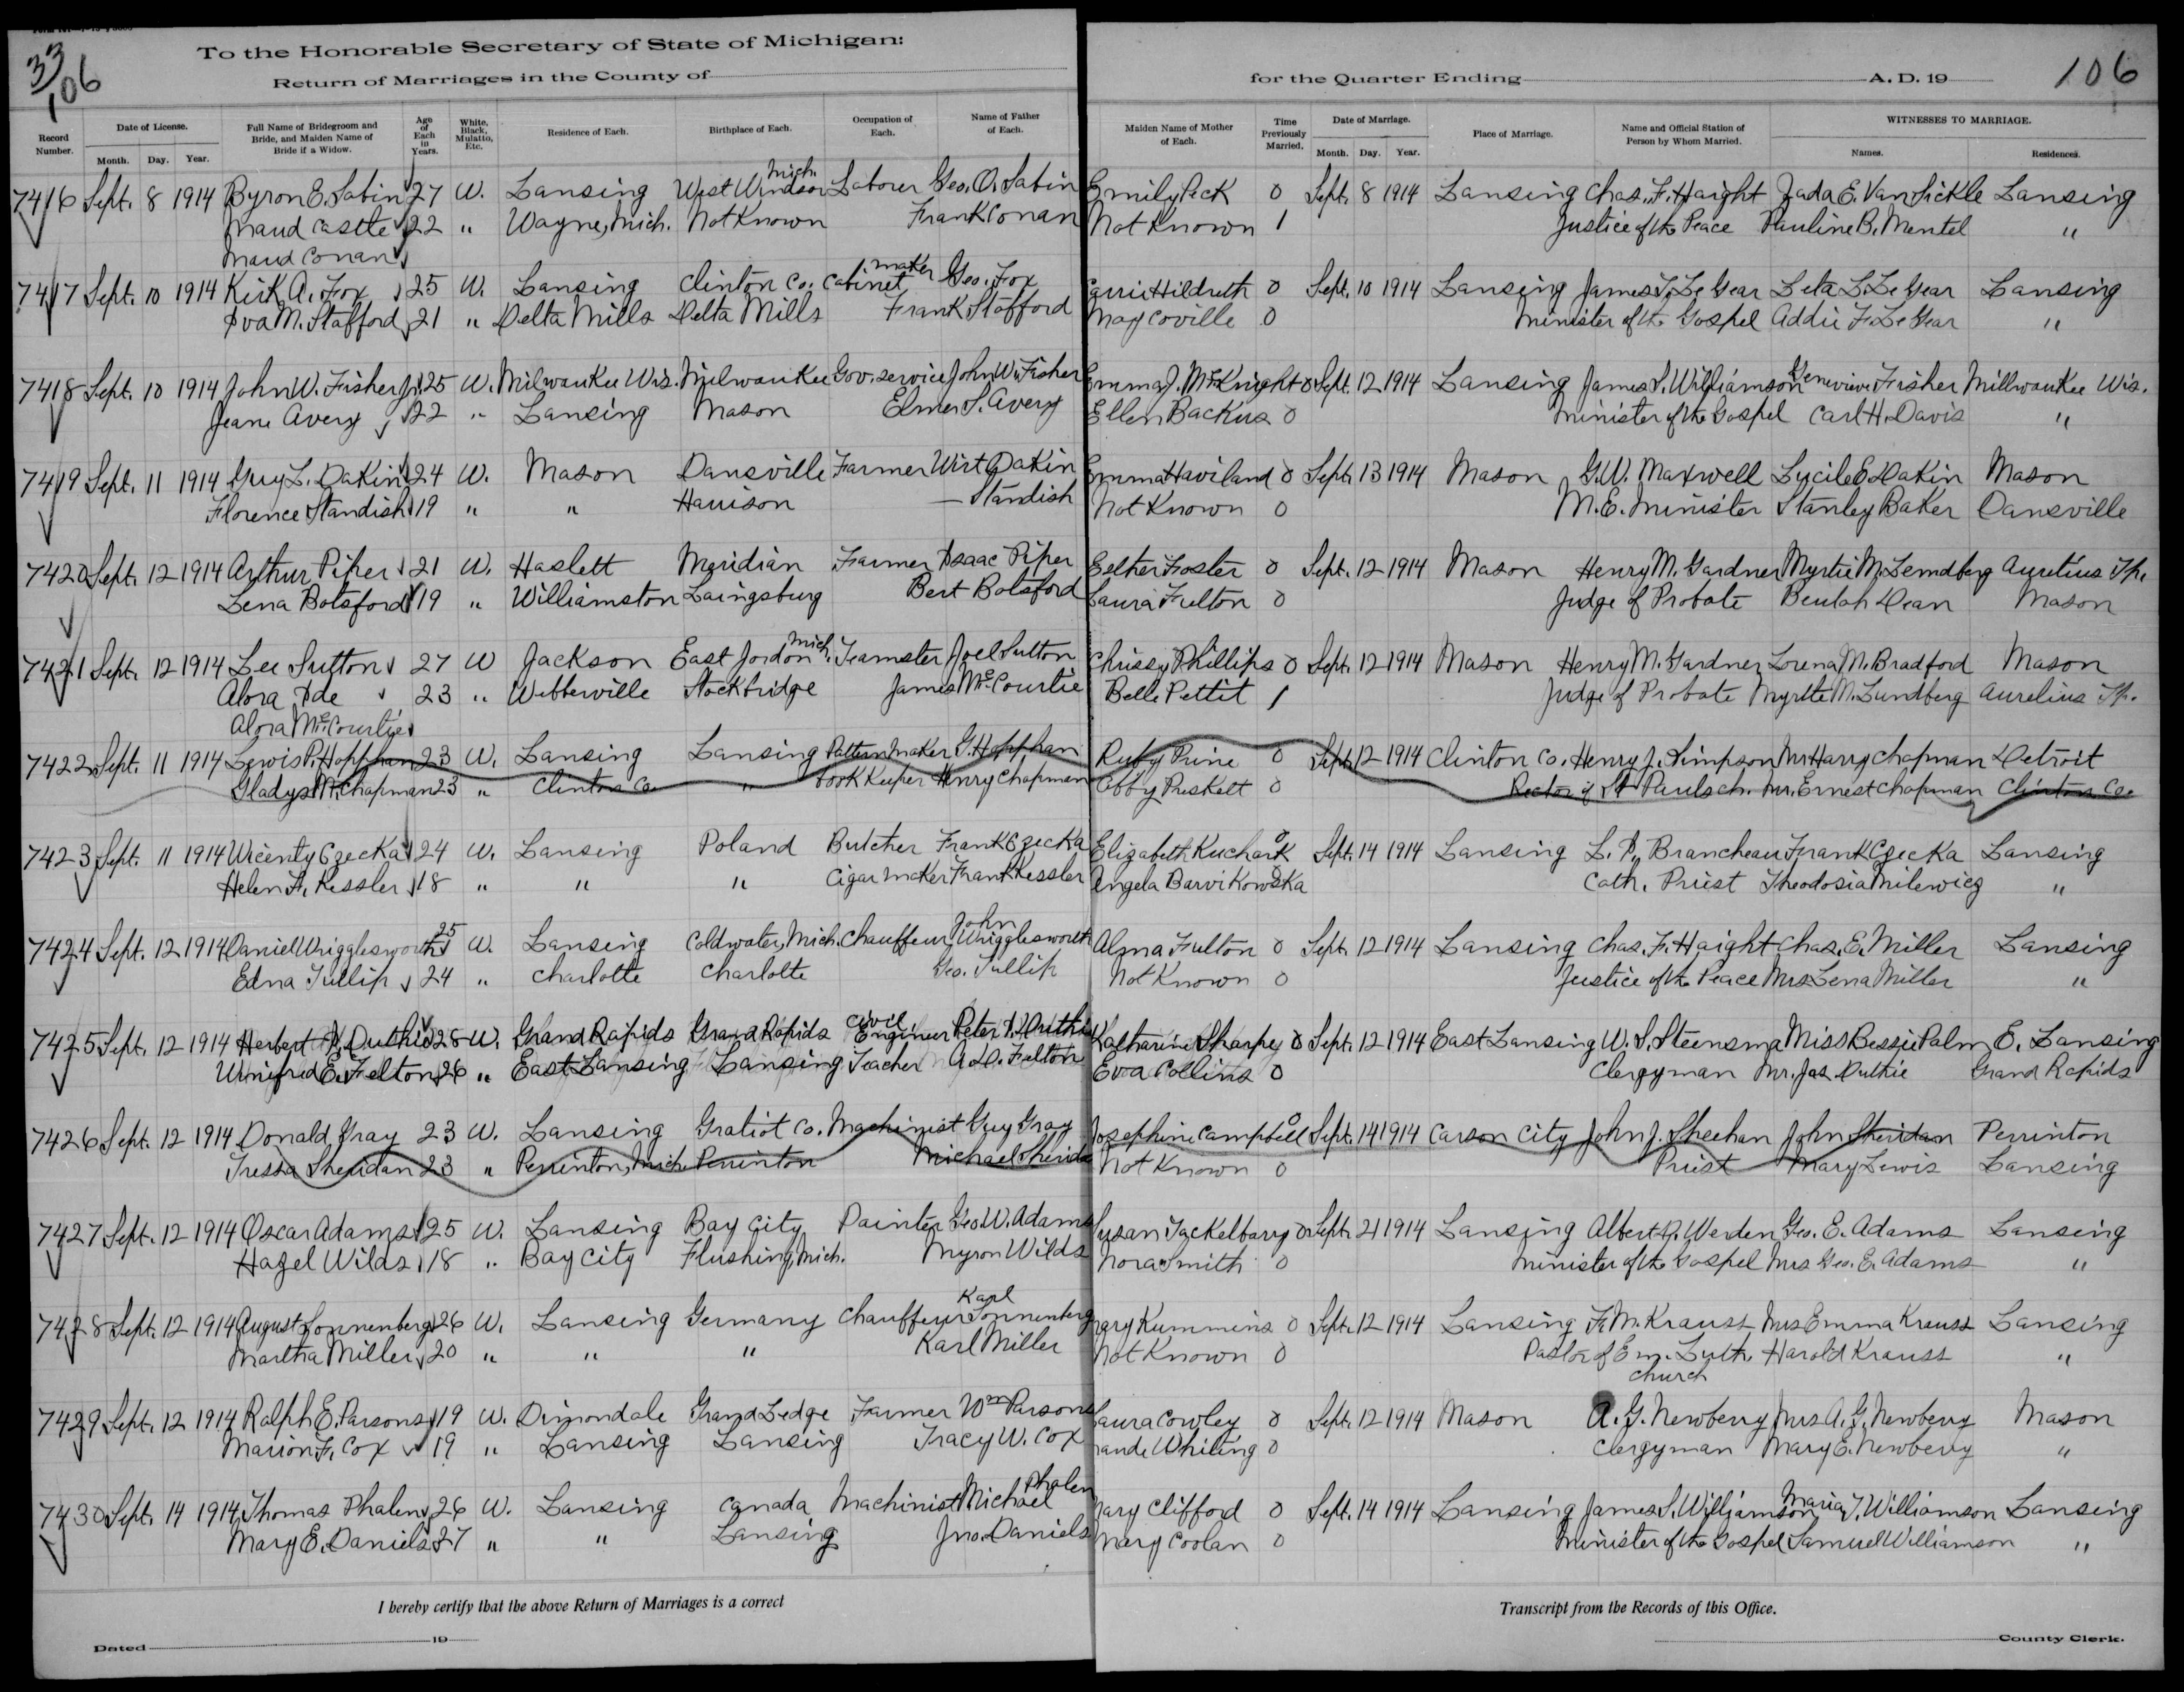 33/106
To the Honorable Secretary of State of Michigan:
Return of Marriages in the County of
for the Quarter Ending A. D. 19
106
Record Number. Date of License. Month. Day. Year. Full Name of Bridegroom and Bride, and Maiden Name of Bride if a Widow. Age of Each in Years. White, Black, Mulatto, Etc. Residence of Each. Birthplace of Each. Occupation of Each. Name of Father of Each. Maiden Name of Mother of Each. Time Previously Married. Date of Marriage. Month. Day. Year. Place of Marriage. Name and Official Station of Person by Whom Married. WITNESSES TO MARRIAGE. Names. Residences.
7416 Sept. 8 1914 Byron E. Sabin 27 W. Lansing West Windsor Mich. Laborer Geo. O. Sabin Emily Peck 0 Sept. 8 1914 Lansing Chas. F. Haight Zada E. Van Sickle Lansing
Maud Castle 22 " Wayne, Mich. Not Known Frank Conan Not Known 1 Justice of the Peace Pauline B. Mentel "
Maud Conan
7417 Sept. 10 1914 Kirk A. Fox 25 W. Lansing Clinton Co. Cabinet maker Geo. Fox Carrie Hildreth 0 Sept. 10 1914 Lansing James T. Le Gear Leta L. Le Gear Lansing
Iva M. Stafford 21 " Delta Mills Delta Mills Frank Stafford May Coville 0 Minister of the Gospel Addie F. Le Gear "
7418 Sept. 10 1914 John W. Fisher Jr. 25 W. Milwaukee Wis. Milwaukee Gov. service John W. Fisher Emma J. McKnight 0 Sept. 12 1914 Lansing James S. Williamson Genevieve Fisher Millwaukee Wis.
Jeane Avery 22 " Lansing Mason Elmer S. Avery Ellen Backus 0 Minister of the Gospel Carl H. Davis "
7419 Sept. 11 1914 Guy L. Dakin 24 W. Mason Dansville Farmer Wirt Dakin Emma Haviland 0 Sept. 13 1914 Mason G. W. Maxwell Lucile E. Dakin Mason
Florence Standish 19 " " Harrison — Standish Not Known 0 M. E. Minister Stanley Baker Dansville
7420 Sept. 12 1914 Arthur Piper 21 W. Haslett Meridian Farmer Isaac Piper Esther Foster 0 Sept. 12 1914 Mason Henry M. Gardner Myrtie M. Lemdberg Aurelius Tp.
Lena Botsford 19 " Williamston Laingsburg Bert Botsford Laura Fulton 0 Judge of Probate Beulah Dean Mason
7421 Sept. 12 1914 Lee Sutton 27 W Jackson East Jordon Mich. Teamster Joel Sutton Chrissy Phillips 0 Sept. 12 1914 Mason Henry M. Gardner Lorena M. Bradford Mason
Alora Ide 23 " Webberville Stockbridge James McCourtie Belle Pettit 1 Judge of Probate Myrtle M. Lundberg Aurelius Tp.
Alora McCourtie
7422 Sept. 11 1914 Lewis P. Hopphan 23 W. Lansing Lansing Patternmaker G. Hopphan Ruby Prine 0 Sept. 12 1914 Clinton Co. Henry J. Simpson Mr Harry Chapman Detroit
Gladys M. Chapman 23 " Clinton Co. " Book Keeper Henry Chapman Ebby Preskelt 0 Rector of St Pauls ch. Mr. Ernest Chapman Clinton Co.
7423 Sept. 11 1914 Wicenty Czecka 24 W. Lansing Poland Butcher Frank Czecka Elizabeth Kuchark 0 Sept. 14 1914 Lansing L. P. Brancheau Frank Czecka Lansing
Helen F. Kessler 18 " " " Cigar maker Frank Kessler Angela Barvikowska 0 Cath. Priest Theodosia Milewicz "
7424 Sept. 12 1914 Daniel Wrigglesworth 25 W. Lansing Coldwater, Mich. Chauffeur John Wrigglesworth Alma Fulton 0 Sept. 12 1914 Lansing Chas. F. Haight Chas. E. Miller Lansing
Edna Tullip 24 " Charlotte Charlotte Geo. Tullip Not Known 0 Justice of the Peace Mrs Lena Miller "
7425 Sept. 12 1914 Herbert Duthie 28 W. Grand Rapids Grand Rapids Civil Engineer Peter Duthie Katharine Sharpe 0 Sept. 12 1914 East Lansing W. S. Steensma Miss Bessie Palm E. Lansing
Winifred E. Felton 26 " East Lansing Lansing Teacher A. D. Felton Eva Collins 0 Clergyman Mr. Jas. Duthie Grand Rapids
7426 Sept. 12 1914 Donald Gray 23 W. Lansing Gratiot Co. Machinist Guy Gray Josephine Campbell 0 Sept. 14 1914 Carson City John J. Sheehan John Sheridan Perrinton
Tressa Sheridan 23 " Perrinton, Mich. Perrinton Michael Sherida Not Known 0 Priest Mary Lewis Lansing
7427 Sept. 12 1914 Oscar Adams 25 W. Lansing Bay City Painter Geo W. Adams Susan Tackelbarry 0 Sept. 21 1914 Lansing Albert A. Werden Geo. E. Adams Lansing
Hazel Wilds 18 " Bay City Flushing, Mich. Myron Wilds Nora Smith 0 Minister of the Gospel Mrs Geo. E. Adams "
7428 Sept. 12 1914 August Sonnenberg 26 W. Lansing Germany Chauffeur Karl Sonnenberg Mary Kummins 0 Sept. 12 1914 Lansing F. M. Krauss Mrs Emma Krauss Lansing
Martha Miller 20 " " " Karl Miller Not Known 0 Pastor of Em. Luth. Church Harold Krauss "
7429 Sept. 12 1914 Ralph E. Parsons 19 W. Dimondale Grand Ledge Farmer Wm Parsons Laura Cowley 0 Sept. 12 1914 Mason A. G. Newberry Mrs A. G. Newberry Mason
Marion F. Cox 19 " Lansing Lansing Tracy W. Cox Maude Whiting 0 Clergyman Mary E. Newberry "
7430 Sept. 14 1914 Thomas Phalen 26 W. Lansing Canada Machinist Michael Phalen Mary Clifford 0 Sept. 14 1914 Lansing James S. Williamson Maria J. Williamson Lansing
Mary E. Daniels 27 " " Lansing Jno. Daniels Mary Coolan 0 Minister of the Gospel Samuel Williamson "
I hereby certify that the above Return of Marriages is a correct Transcript from the Records of this Office.
Dated 19 County Clerk.